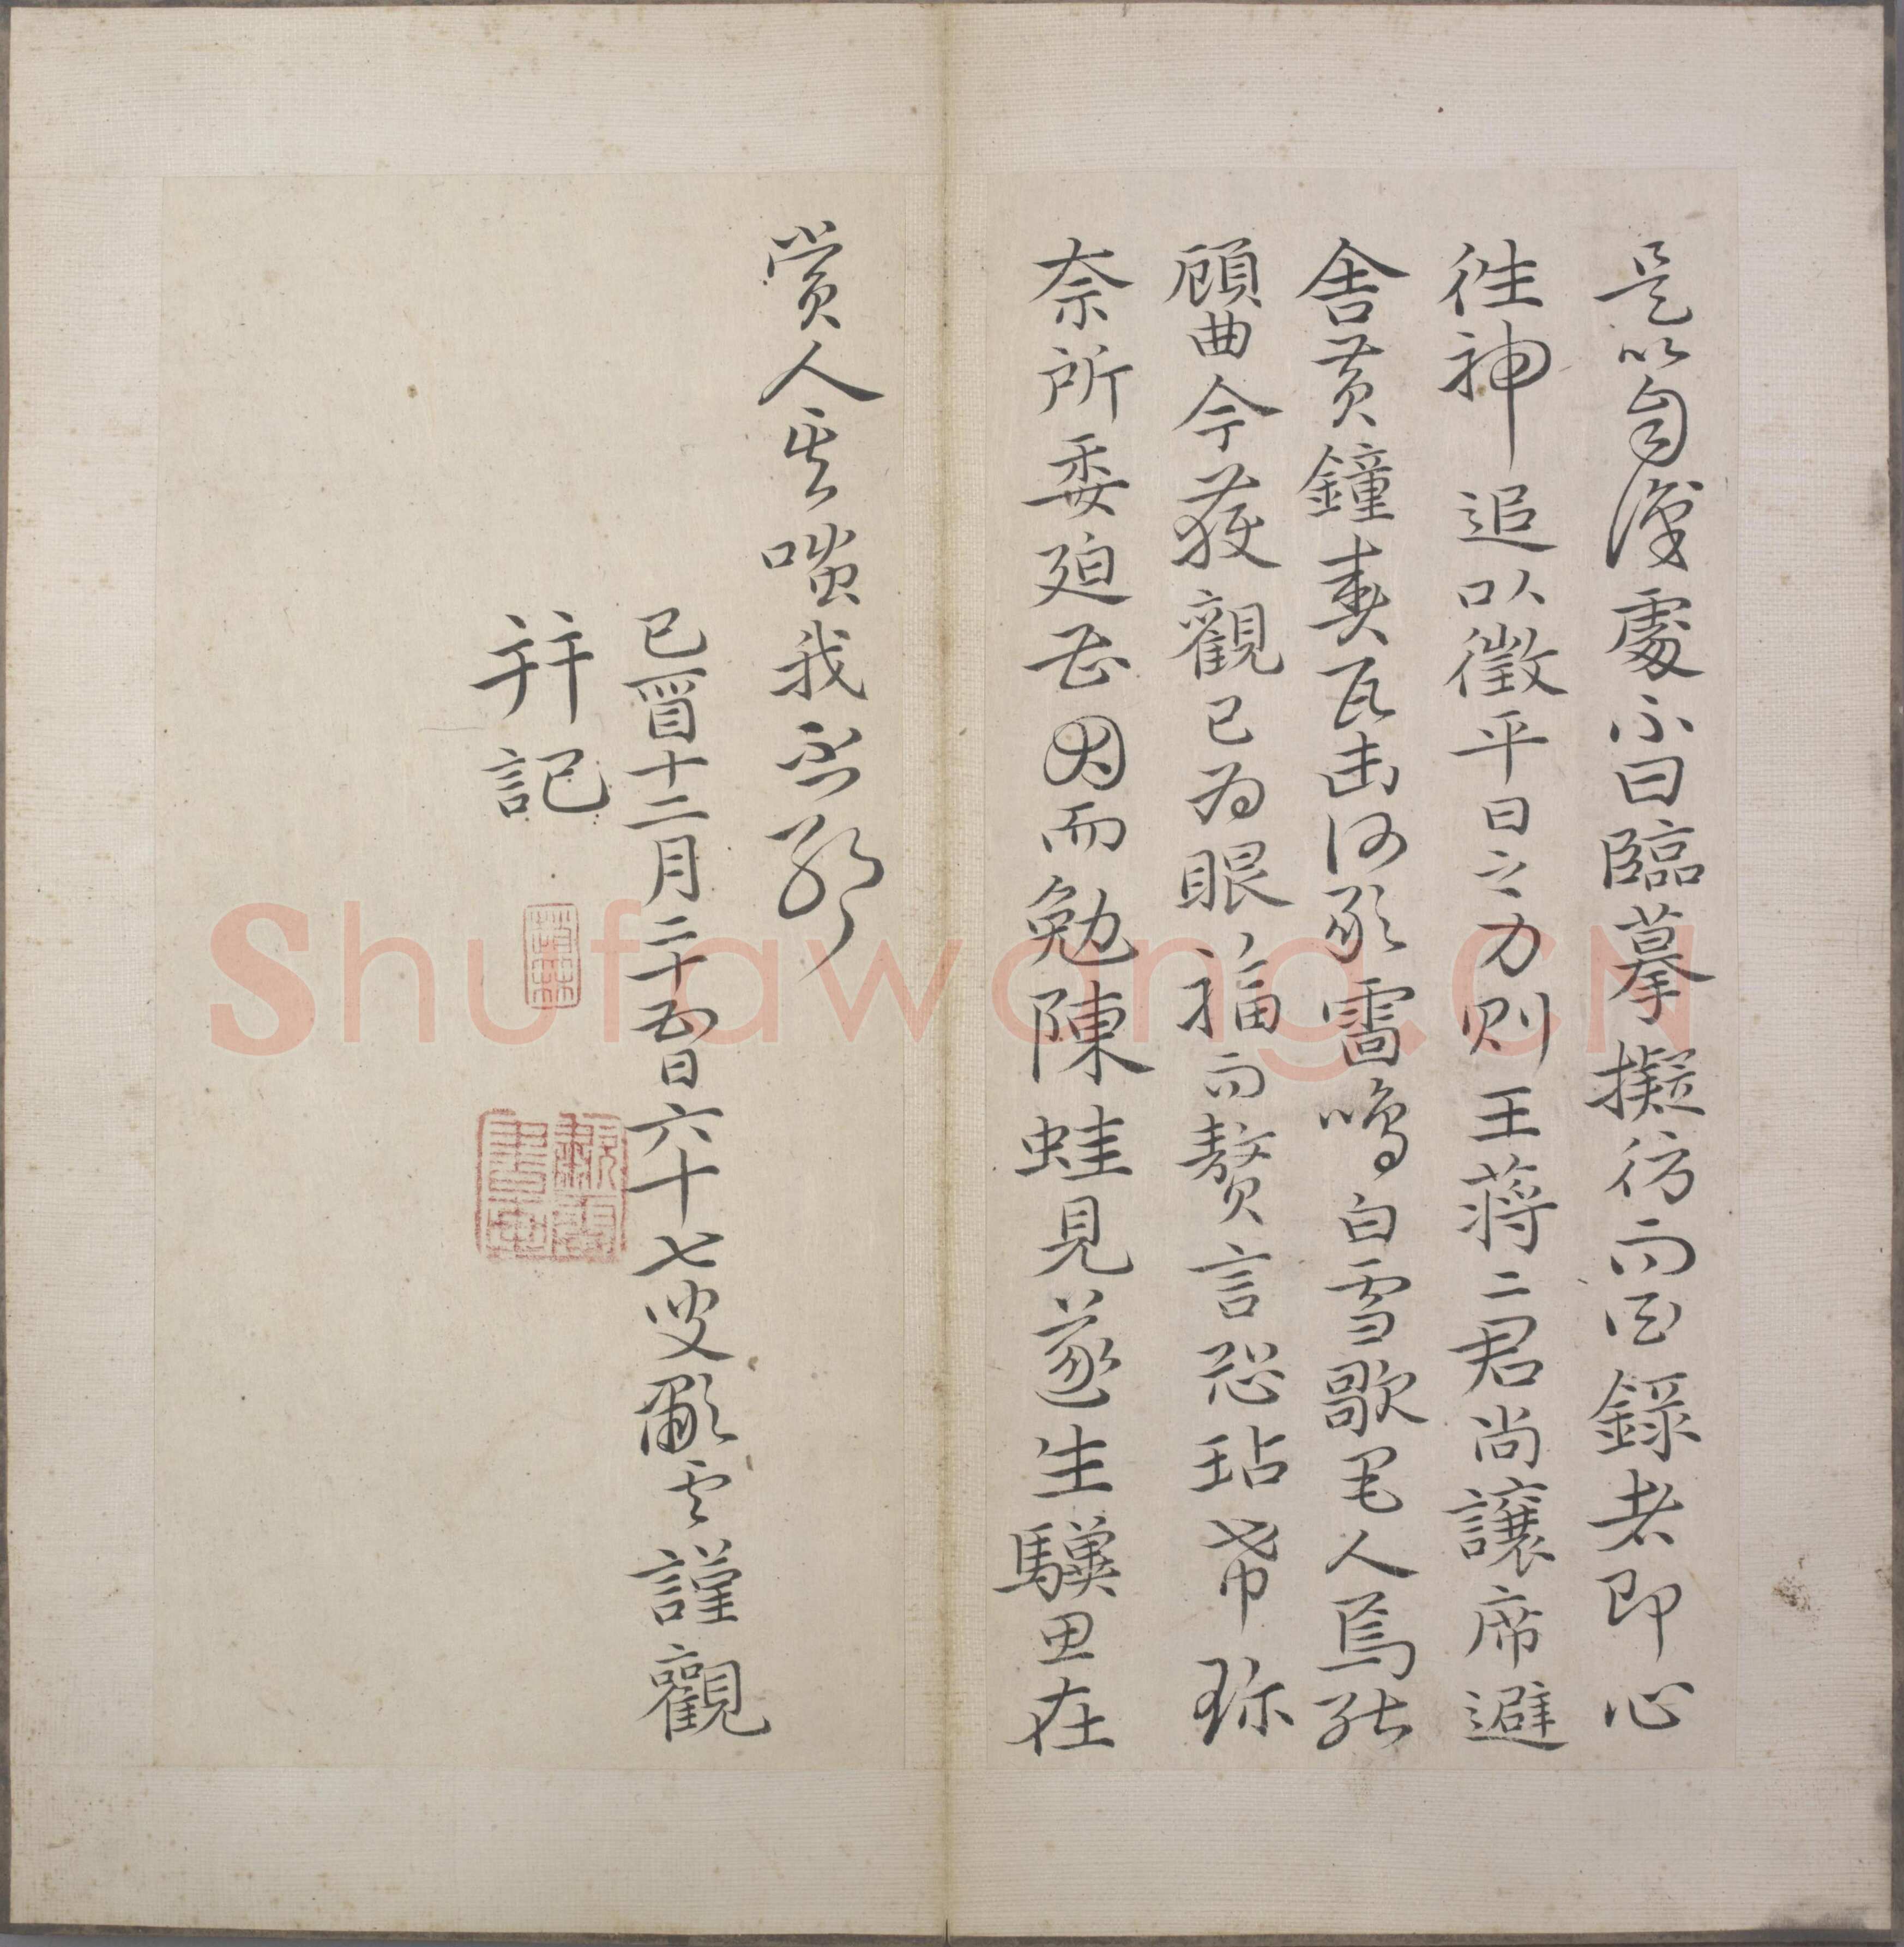 是以自淺處不曰臨摹擬仿而曰錄者即心
往神追以徵平日之力則王蔣二君尚讓席避
舍黃鐘奏瓦缶何敢雷鳴白雪歌里人焉能
顧曲今獲觀已為眼福而贅言恐玷希珍
奈所委迫切因而勉陳蛙見遂生驥思在
賞人其嗤我不敏
己酉十二月二十五日六十七叟嚴雲謹觀
并記
Shufawang.CN